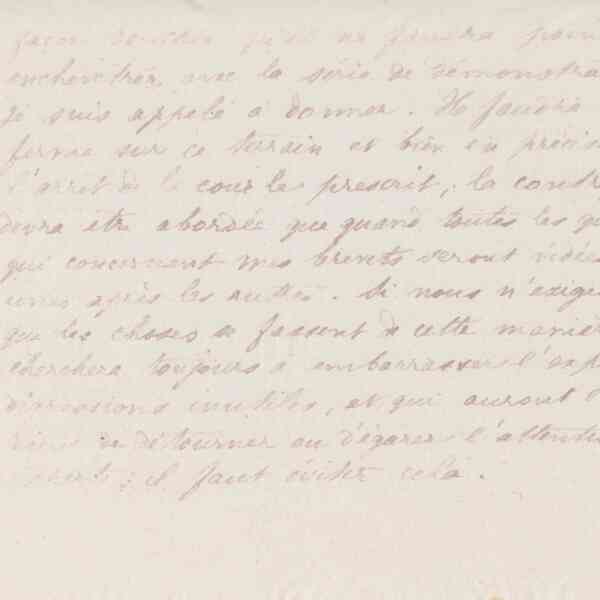 façon qu'il ne faudra
avec la série de démonstra
je suis appelé à donner. Il faudra
ferme sur ce terrain et bien en précis
l'arrêt de la cour les prescrit, la cont
devra être abordée que quand toutes les q
qui concernent mes brevets seront vidées
unes après les autres. Si nous n'exige
que les choses se fassent de cette maniè
cherchera toujours à embarrasser l'exp
discussions inutiles, et qui auront
de détourner ou d'égarer l'attenti
; il faut éviter cela.